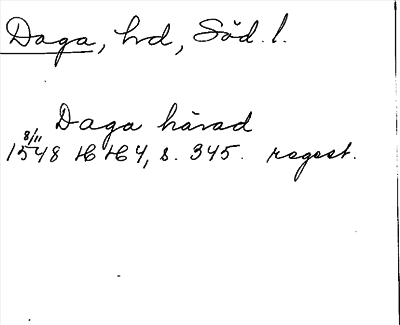 Daga, hd, Söd. l.
Daga härad
8/11
1548 HH 4, s. 345. regest.